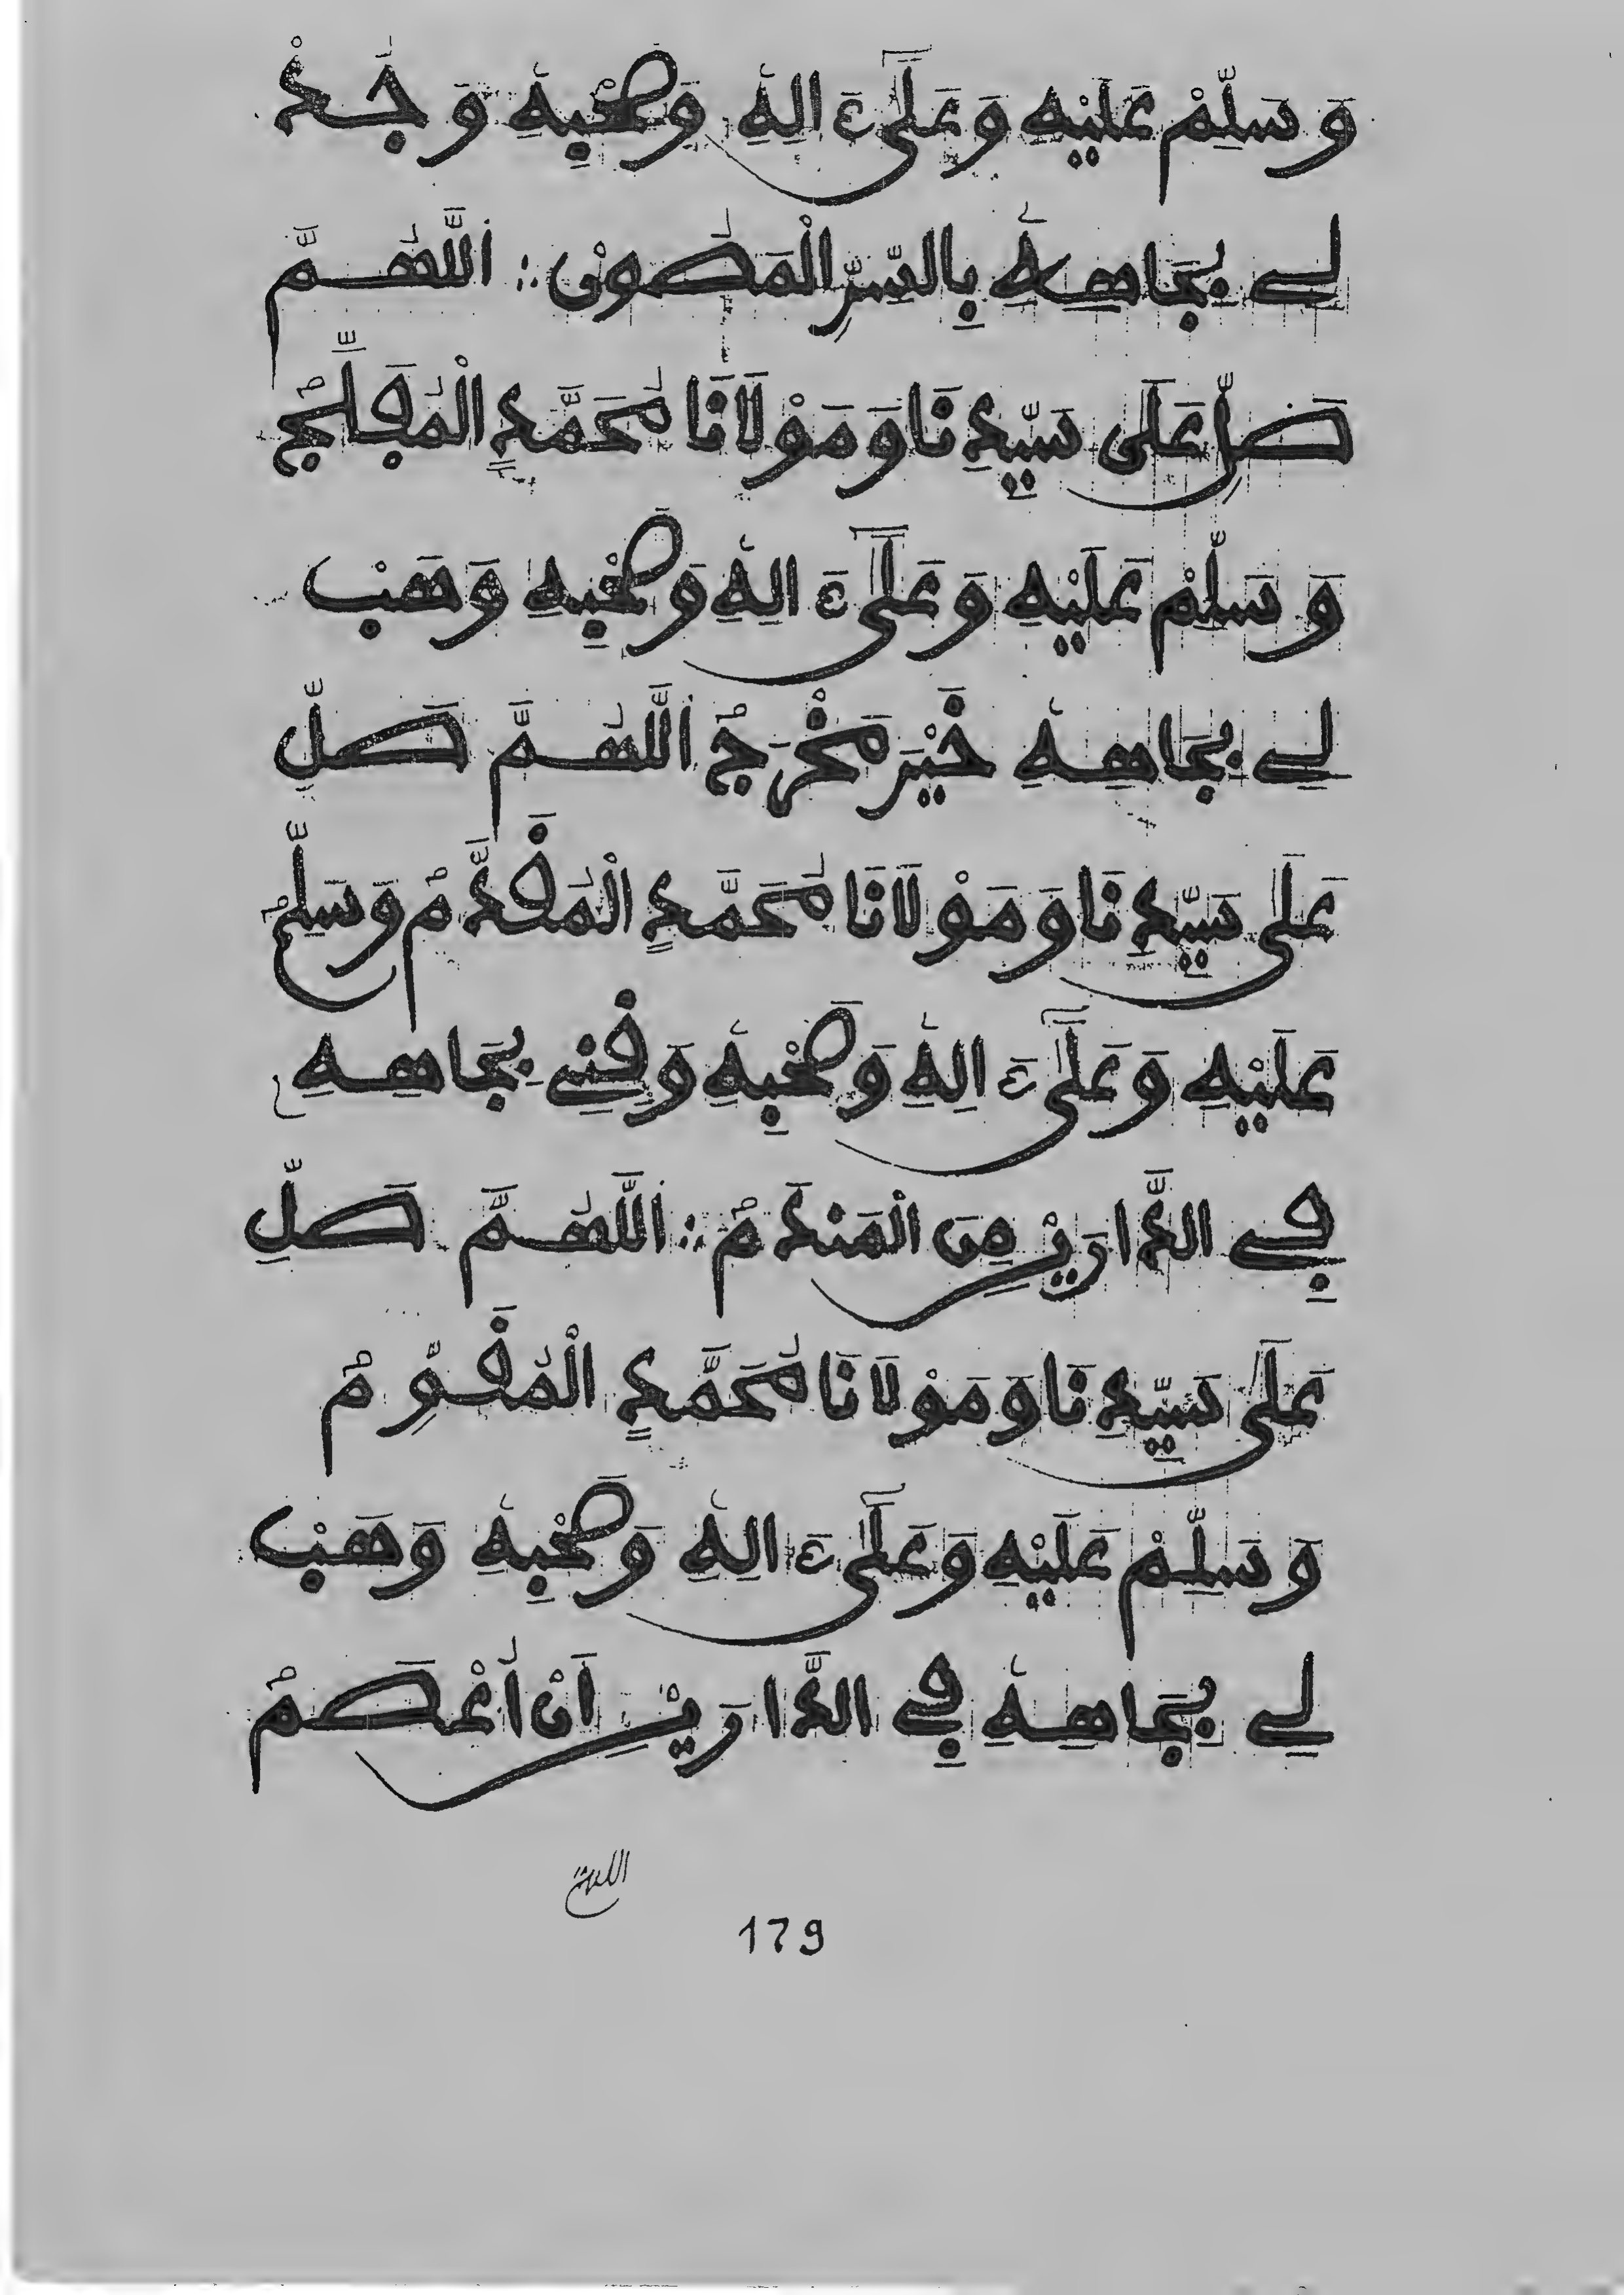 وَسَلِّمْ عَلَيْهِ وَعَلَىٰٓ ءَالِهِ وَصَحْبِهِ وَجُدْ
لِے بِجَاهِهِ بِالسِّرِّ الْمَصُونْ ؞ اَللَّهُمَّ
صَلِّ عَلَى سَيِّدِنَا وَمَوْلَانَا مُحَمَّدٍ الْمُفَلَّجُ
وَسَلِّمْ عَلَيْهِ وَعَلَىٰٓ ءَالِهِ وَصَحْبِهِ وَهَبْ
لِے بِجَاهِهِ خَيْرَ مَخْرَجُ اَللَّهُمَّ صَلِّ
عَلَى سَيِّدِنَا وَمَوْلَانَا مُحَمَّدٍ الْمُقَدَّمُ وَسَلِّمُ
عَلَيْهِ وَعَلَىٰٓ ءَالِهِ وَصَحْبِهِ وَقِنِے بِجَاهِهِ
فِے الدَّارَيْنِ مِنَ الْمَنْدَمُ ؞ اَللَّهُمَّ صَلِّ
عَلَى سَيِّدِنَا وَمَوْلَانَا مُحَمَّدٍ الْمُقَوِّمُ
وَسَلِّمْ عَلَيْهِ وَعَلَىٰٓ ءَالِهِ وَصَحْبِهِ وَهَبْ
لِے بِجَاهِهِ فِے الدَّارَيْنِ أَنْ أُعْصَمُ
اللهم
179